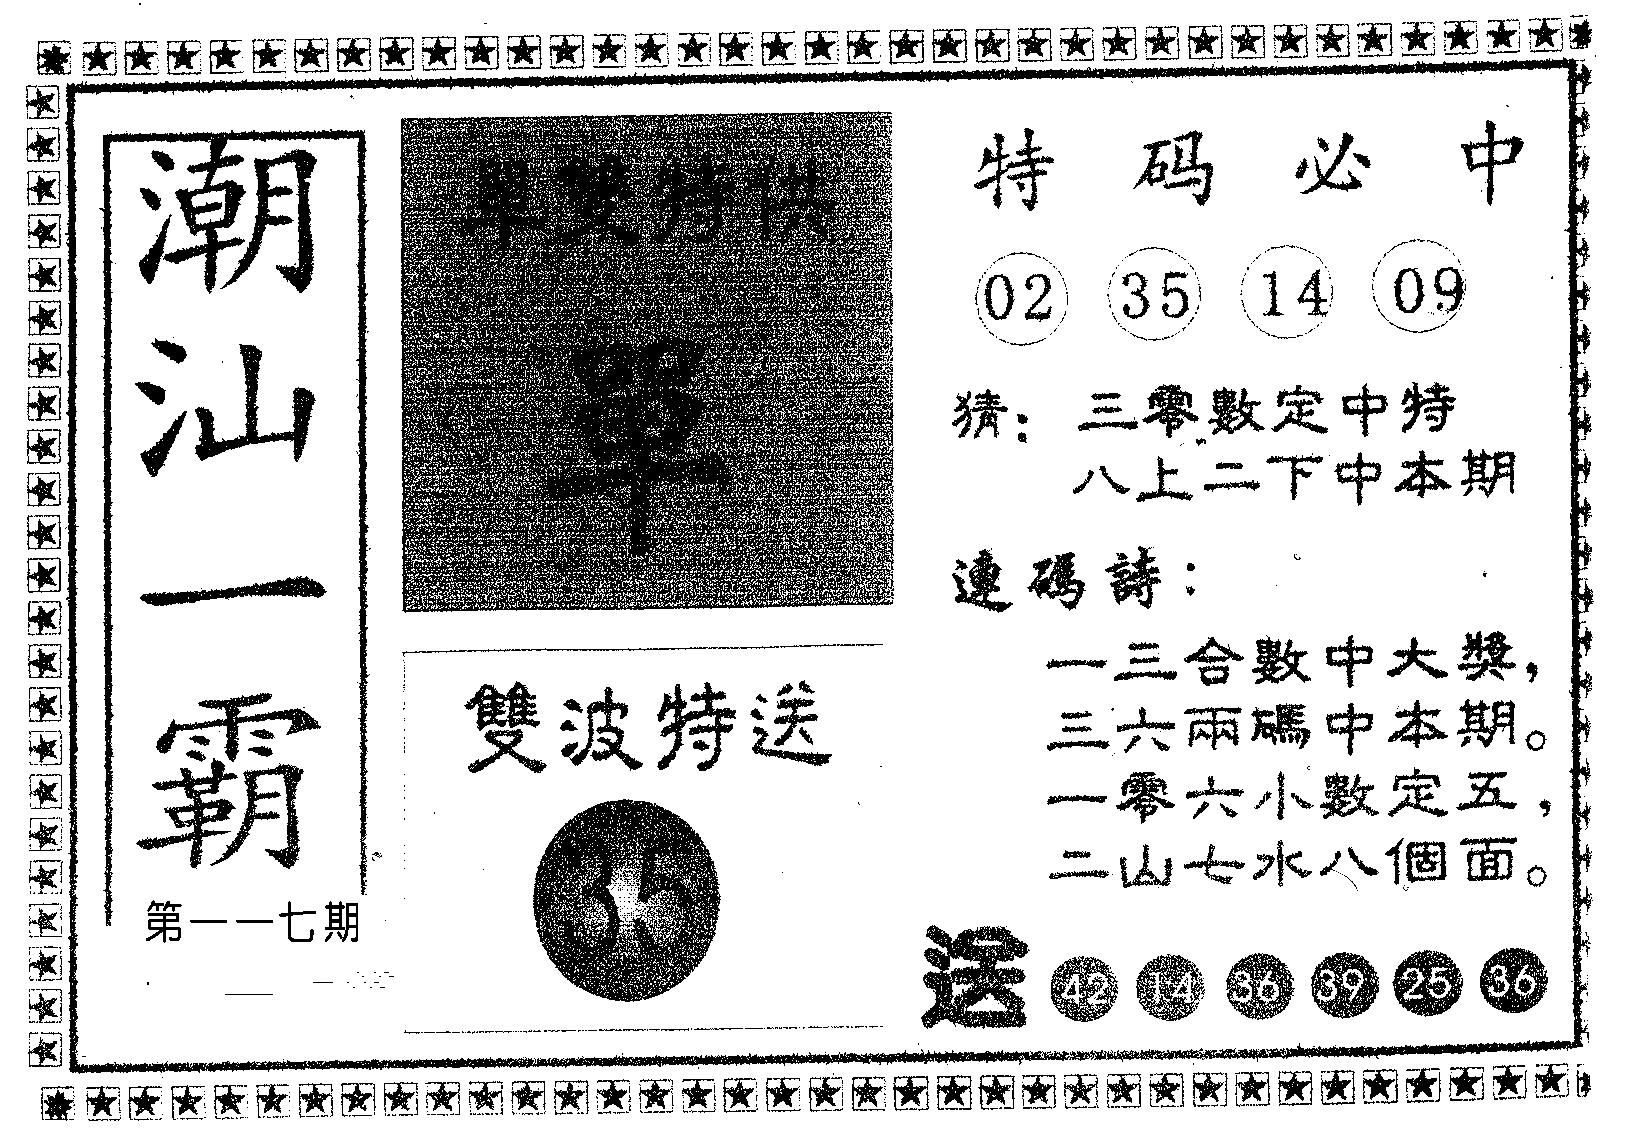 潮汕一霸
第一一七期
單雙特供
單
雙波特送
35
特码必中
02 35 14 09
猜：三零數定中特
八上二下中本期
連碼詩：
一三合數中大獎，
三六兩碼中本期。
一零六小數定五，
二山七水八個面。
送 42 14 36 39 25 36